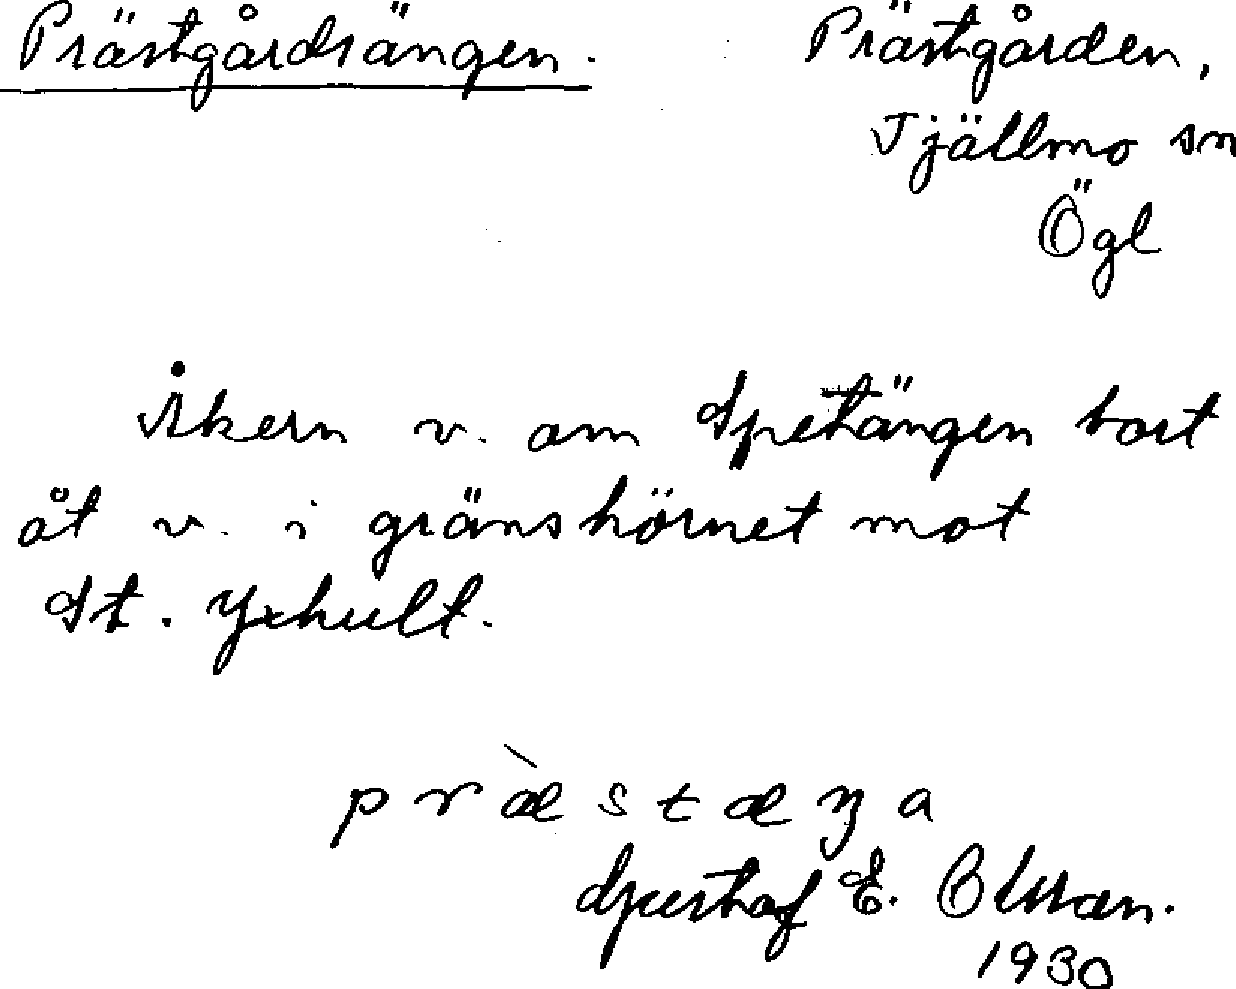 Prästgårdsängen. Prästgården,
Tjällmo sn
Ögl
Åkern v. om Spetängen bort
åt v. i gränshörnet mot
St. Yxhult.
præ̀stæŋa
Gustaf E. Olsson.
1930